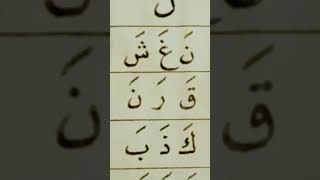 نَ غَ شَ
قَ رَ نَ
كَ ذَ بَ